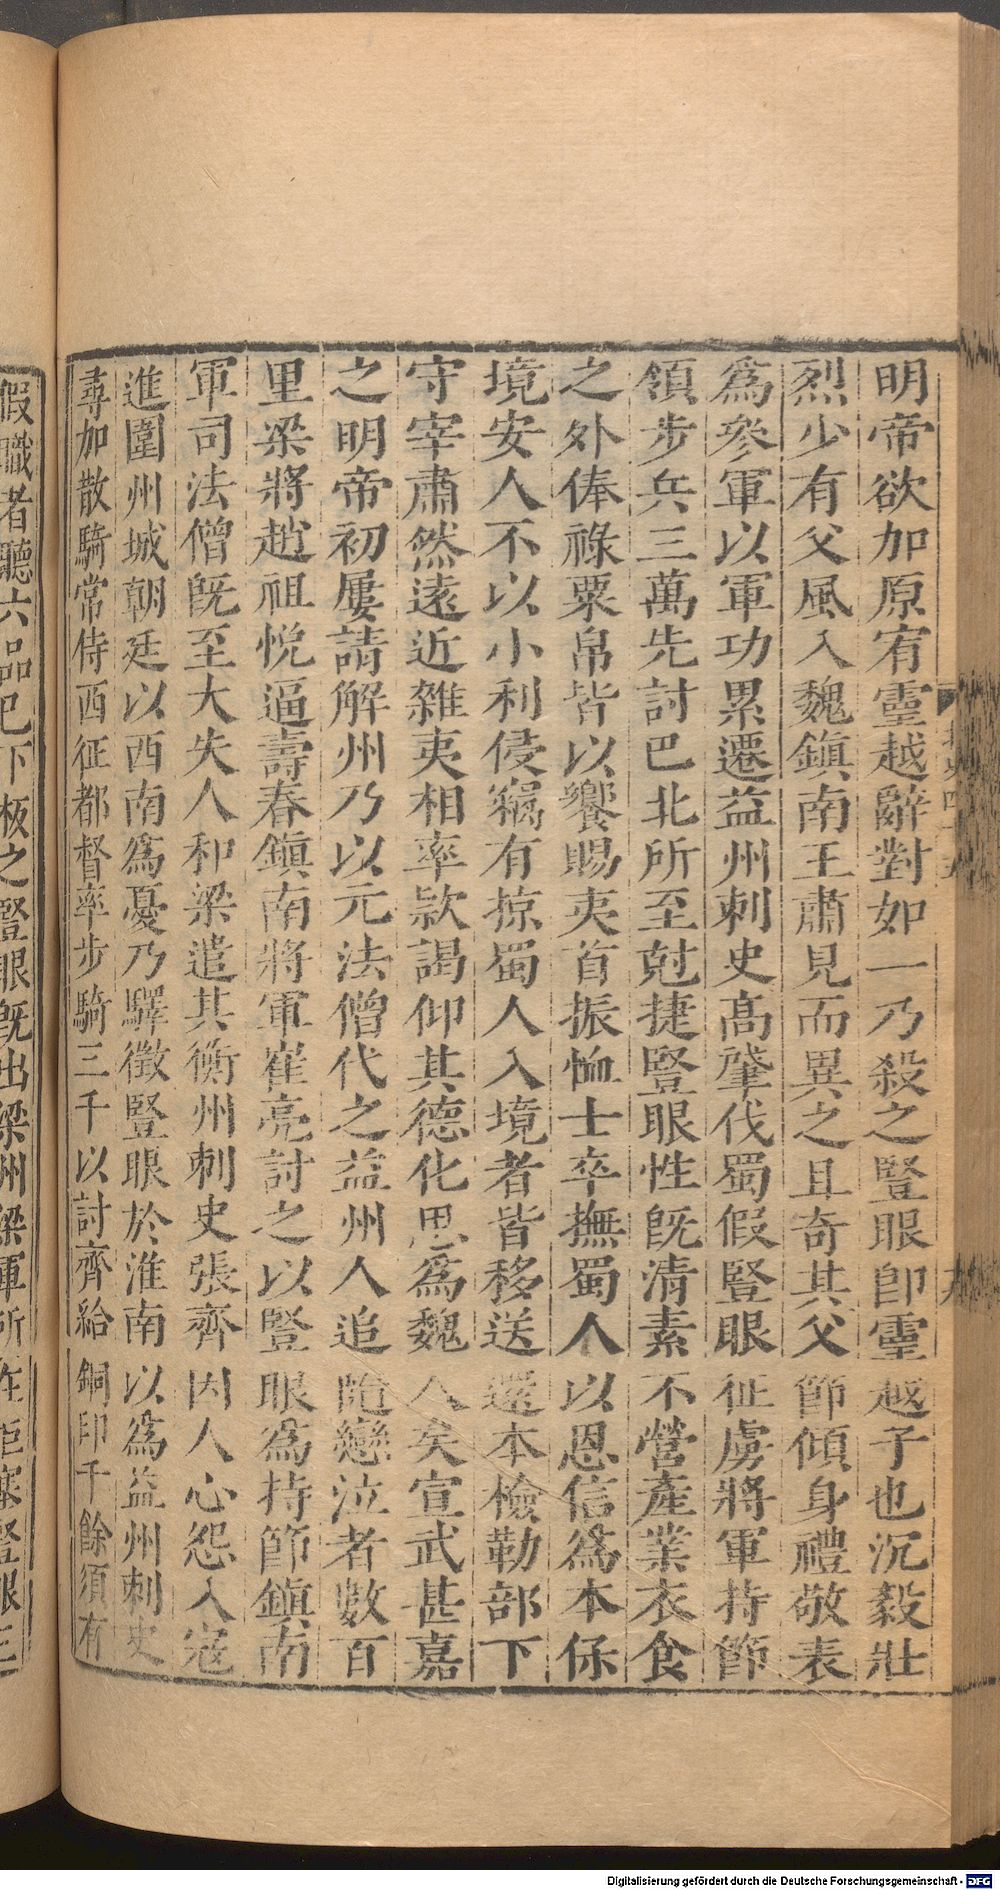 明帝欲加原宥靈越辭對如一乃殺之豎眼卽靈越子也沉毅壯
烈少有父風入魏鎮南王肅見而異之且奇其父節傾身禮敬表
爲參軍以軍功累遷益州刺史高肇伐蜀假豎眼征虜將軍持節
領步兵三萬先討巴北所至尅捷豎眼性旣清素不營產業衣食
之外俸祿粟帛皆以饗賜夷首振恤士卒撫蜀人以恩信爲本保
境安人不以小利侵竊有掠蜀人入境者皆移送還本檢勒部下
守宰肅然遠近雜夷相率欵謁仰其德化思爲魏人矣宣武甚嘉
之明帝初屢請解州乃以元法僧代之益州人追隨戀泣者數百
里梁將趙祖悅逼壽春鎮南將軍崔亮討之以豎眼爲持節鎮南
軍司法僧旣至大失人和梁遣其衡州刺史張齊因人心怨入寇
進圍州城朝廷以西南爲憂乃驛徵豎眼於淮南以爲益州刺史
尋加散騎常侍西征都督率步騎三千以討齊給銅印千餘須有
假職者聽六品已下板之豎眼旣出梁州梁軍所在拒塞豎眼三
Digitalisierung gefördert durch die Deutsche Forschungsgemeinschaft - DFG